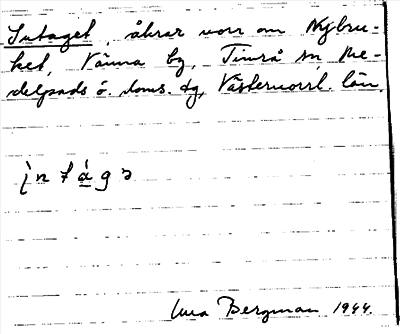 Intaget, åkrar norr om Nybru-
ket, Vänna by, Timrå sn, Me-
delpads ö. doms. dg, Västernorrl. län.
ìntágə
Bergman 1944.